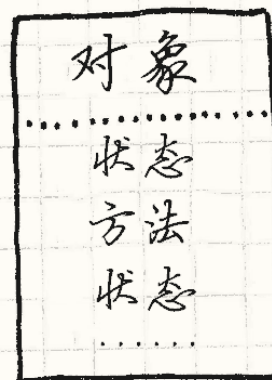 对象
状态
方法
状态
......